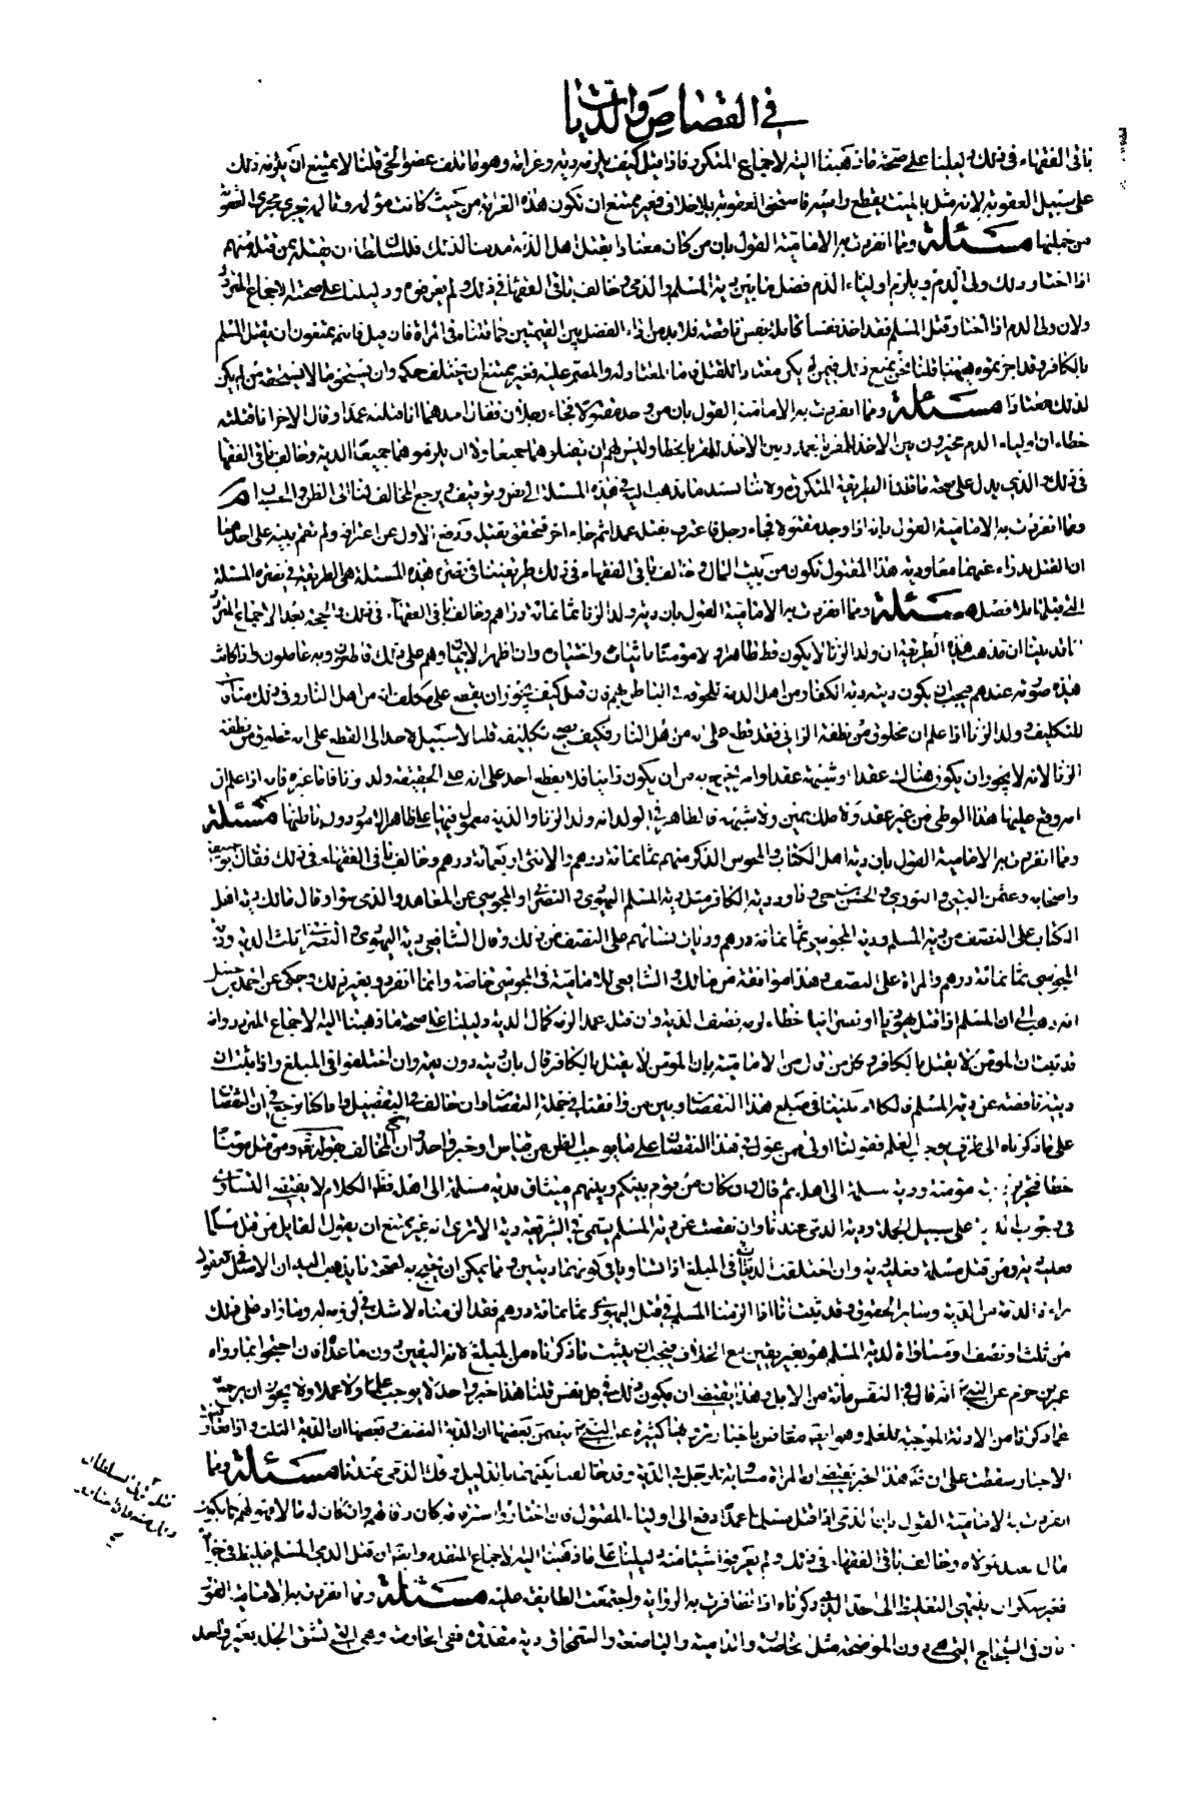 في القصاص والديات
باقي الفقهاء في ذلك دليلنا على صحة ما ذهبنا اليه الاجماع المتكرر فاذا قيل كيف يلزمه دية وغرامة وهو ما اتلف عضوا لحي قلنا لا يمتنع ان يلزمه ذلك
على سبيل العقوبة لانه مثل بالميت بقطع راسه فاستحق العقوبة بلا خلاف فغير ممتنع ان تكون هذه الغرامة من حيث كانت مؤلمة وتالمه تجري مجرى العقوبة
من جملتها مسئلة ومما انفردت به الامامية القول بان من كان معتادا لقتل اهل الذمة مدمنا لذلك فللسلطان ان يقتله بمن قتله منهم
اذا اختار ذلك ولي الدم ويلزم اولياء الدم فضل ما بين دية المسلم والذمي وخالف باقي الفقهاء في ذلك ولم يعرفوه ودليلنا على صحته الاجماع المتردد
ولان ولي الدم اذا اختار قتل المسلم فقد اخذ نفسا كاملة بنفس ناقصة فلا بد من اداء الفضل بين القيمتين كما قلناه في امراة فان قيل فانتم تمنعون ان يقتل المسلم
بالكافر وقد اجزتموه ههنا قلنا نحن نمنع ذلك فيمن لم يكن معتادا للقتل فاما المعتاد له والمصر عليه فغير ممتنع ان يختلف حكمه وان يستحق ما لا يستحقه من لم يكن
لذلك معتادا مسئلة ومما انفردت به الامامية القول بان من وجد مقتولا فجاء رجلان فقال احدهما انا قتلته عمدا وقال الاخر انا قتلته
خطاء ان اولياء الدم مخيرون بين الاخذ للمقر بالعمد وبين الاخذ للمقر بالخطا وليس لهم ان يقتلوهما جميعا ولا ان يلزموهما جميعا الدية وخالف باقي الفقهاء
في ذلك والذي يدل على صحة ما قلناه الطريقة المتكررة ولانا نسند ما نذهب اليه في هذه المسئلة الى نص وتوقيف ويرجع المخالف لنا الى الظن والحسبان
ومما انفردت به الامامية القول بانه اذا وجد مقتول فجاء رجل فاعترف بقتله عمدا ثم جاء اخر فتحقق بقتله ودفع الاول عن اعترافه ولم تقم بينة على احدهما
ان القتل يدرأ عنهما معا ودية هذا المقتول تكون من بيت المال وخالف باقي الفقهاء في ذلك طريقتنا في نصرة هذه المسئلة هي الطريقة في نصرة المسئلة
التي قبلها بلا فصل مسئلة ومما انفردت به الامامية القول بان دية ولد الزنا ثمانمائة درهم وخالف باقي الفقهاء في ذلك والحجة بعد الاجماع المتردد
انا قد بينا ان مذهب هذه الطريقة ان ولد الزنا لا يكون قط طاهرا ولا مؤمنا باثياره واختياره وان اظهر الايمان وهم على ذلك قاطعون وبه عاملون واذا كانت
هذه صورته عندهم فيجب ان يكون ديته دية الكفار من اهل الذمة للحوقه في الباطن بهم فان قيل كيف يجوز ان يقطع على مكلف انه من اهل النار وفي ذلك منافاة
للتكليف وولد الزنا اذا علم انه مخلوق من نطفة الزاني فقد قطع على انه من اهل النار فكيف يصح تكليفه قلنا لا سبيل لاحد الى القطع على انه خلق من نطفة
الزنا لانه لا يجوز ان يكون هناك عقد او شبهة عقد او امر يخرج به من ان يكون زانيا فلا يقطع احد على انه على الحقيقة ولد زنا فاما غيره فانه اذا علم ان
امه وقع عليها هذا الوطي من غير عقد ولا ملك يمين ولا شبهة فالظاهر في الولد انه ولد الزنا والدية معمول فيها على ظاهر الامور دون باطنها مسئلة
ومما انفردت به الامامية القول بان دية اهل الكتاب والمجوس الذكر منهم ثمانمائة درهم والانثى اربعمائة درهم وخالف باقي الفقهاء في ذلك فقال ابو حنيفة
واصحابه وعثمن البتي والثوري والحسن بن حي وداود دية الكافر مثل دية المسلم اليهودي والنصراني والمجوسي عن المعاهد والذمي سواء وقال مالك دية اهل
الكتاب على النصف من دية المسلم ودية المجوسي ثمانمائة درهم وديات نسائهم على النصف من ذلك وقال الشافعي دية اليهودي والنصراني ثلث الدية ودية
المجوسي ثمانمائة درهم والمراة على النصف وهذا موافقة من مالك والشافعي للامامية في المجوسي خاصة وانما انفردوا بغير ذلك وحكي عن احمد بن حنبل
انه ذهب الى ان المسلم اذا قتل يهوديا او نصرانيا خطاء لزمه نصف الدية وان قتله عمدا لزمه كمال الدية دليلنا على صحة ما ذهبنا اليه الاجماع المتردد وانه
قد ثبت ان المؤمن لا يقتل بالكافر وكل من قال من الامامية بان المؤمن لا يقتل بالكافر قال بان ديته دون ديته وان اختلفوا في المبلغ واذا ثبت ان
ديته ناقصة عن دية المسلم فالكلام بيننا في مبلغ هذا النقصان وبين من وافقنا في جملة النقصان وان خالف في التفصيل واما
على ما ذكرناه الى طريق يوجب العلم فقولنا اولى ممن عول في هذا النقصان على ما يوجب الظن من قياس او خبر واحد وان احتج المخالف بقوله تعالى ومن قتل مؤمنا
خطا فتحرير رقبة مؤمنة ودية مسلمة الى اهله ثم قال وان كان من قوم بينكم وبينهم ميثاق فدية مسلمة الى اهله فظاهر الكلام لا يقتضي التساوي
في وجوب الدية على سبيل الجملة ودية الذمي عندنا وان نقصت عن دية المسلم يسمى في الشريعة دية الا ترى انه غير ممتنع ان يقول القايل من قتل مسلما
فعليه دية ومن قتل مسلمة فعليه دية وان اختلفت الديتان في المبلغ اذا تساويا في كونهما ديتين ومما يمكن ان نحتج به لصحة ما نذهب اليه ان الاصل في العقول
براءة الذمة من الدية وسائر الحقوق وقد ثبت انا اذا الزمنا المسلم في قتل اليهودي ثمانمائة درهم فقد الزمناه لا شك في لزومه وما زاد على ذلك
من ثلث او نصف او مساواة لدية المسلم هو بغير يقين مع الخلاف فيجب ان يثبت ما ذكرناه من المبلغ لانه اليقين دون ما عداه فان احتجوا بما رواه
عمرو بن حزم عن النبي ص انه قال في النفس مائة من الابل وهذا يقتضي ان يكون ذلك في كل نفس قلنا هذا خبر واحد لا يوجب علما ولا عملا ولا يجوز ان يرجع به
عما ذكرنا من الادلة الموجبة للعلم وهو ايضا معارض باخبار نرويها كثيرة عن النبي ص يتضمن بعضها ان الدية النصف وبعضها ان الدية الثلث واذا تعارضت
الاخبار سقطت على ان هذا الخبر يقتضي ان المراة مساوية للرجل في الدية وقد خالفنا بينهما بالدليل وكذلك الذمي عندنا مسئلة ومما
انفردت به الامامية القول بان الذمي اذا قتل مسلما عمدا دفع الى اولياء المقتول فان اختاروا استرقاقه كان رقا لهم وان كان له مال فهو لهم كما يكون
مال عبيده لمولاه وخالف باقي الفقهاء في ذلك ولم يعرفوا شيئا منه دليلنا على ما ذهبنا اليه الاجماع المتقدم وايضا ان قتل الذمي المسلم غليظ في
فغير منكر ان ينتهي التغليظ الى الحد الذي ذكرناه اذا تظافرت به الرواية واجتمعت الطائفة عليه مسئلة ومما انفردت به الامامية القول
بان في الشجاج التي هي دون الموضحة مثل الخارصة والدامية والباضعة والسمحاق دية مقدرة ففي الخارصة وهي التي تشق الجلد بعير واحد